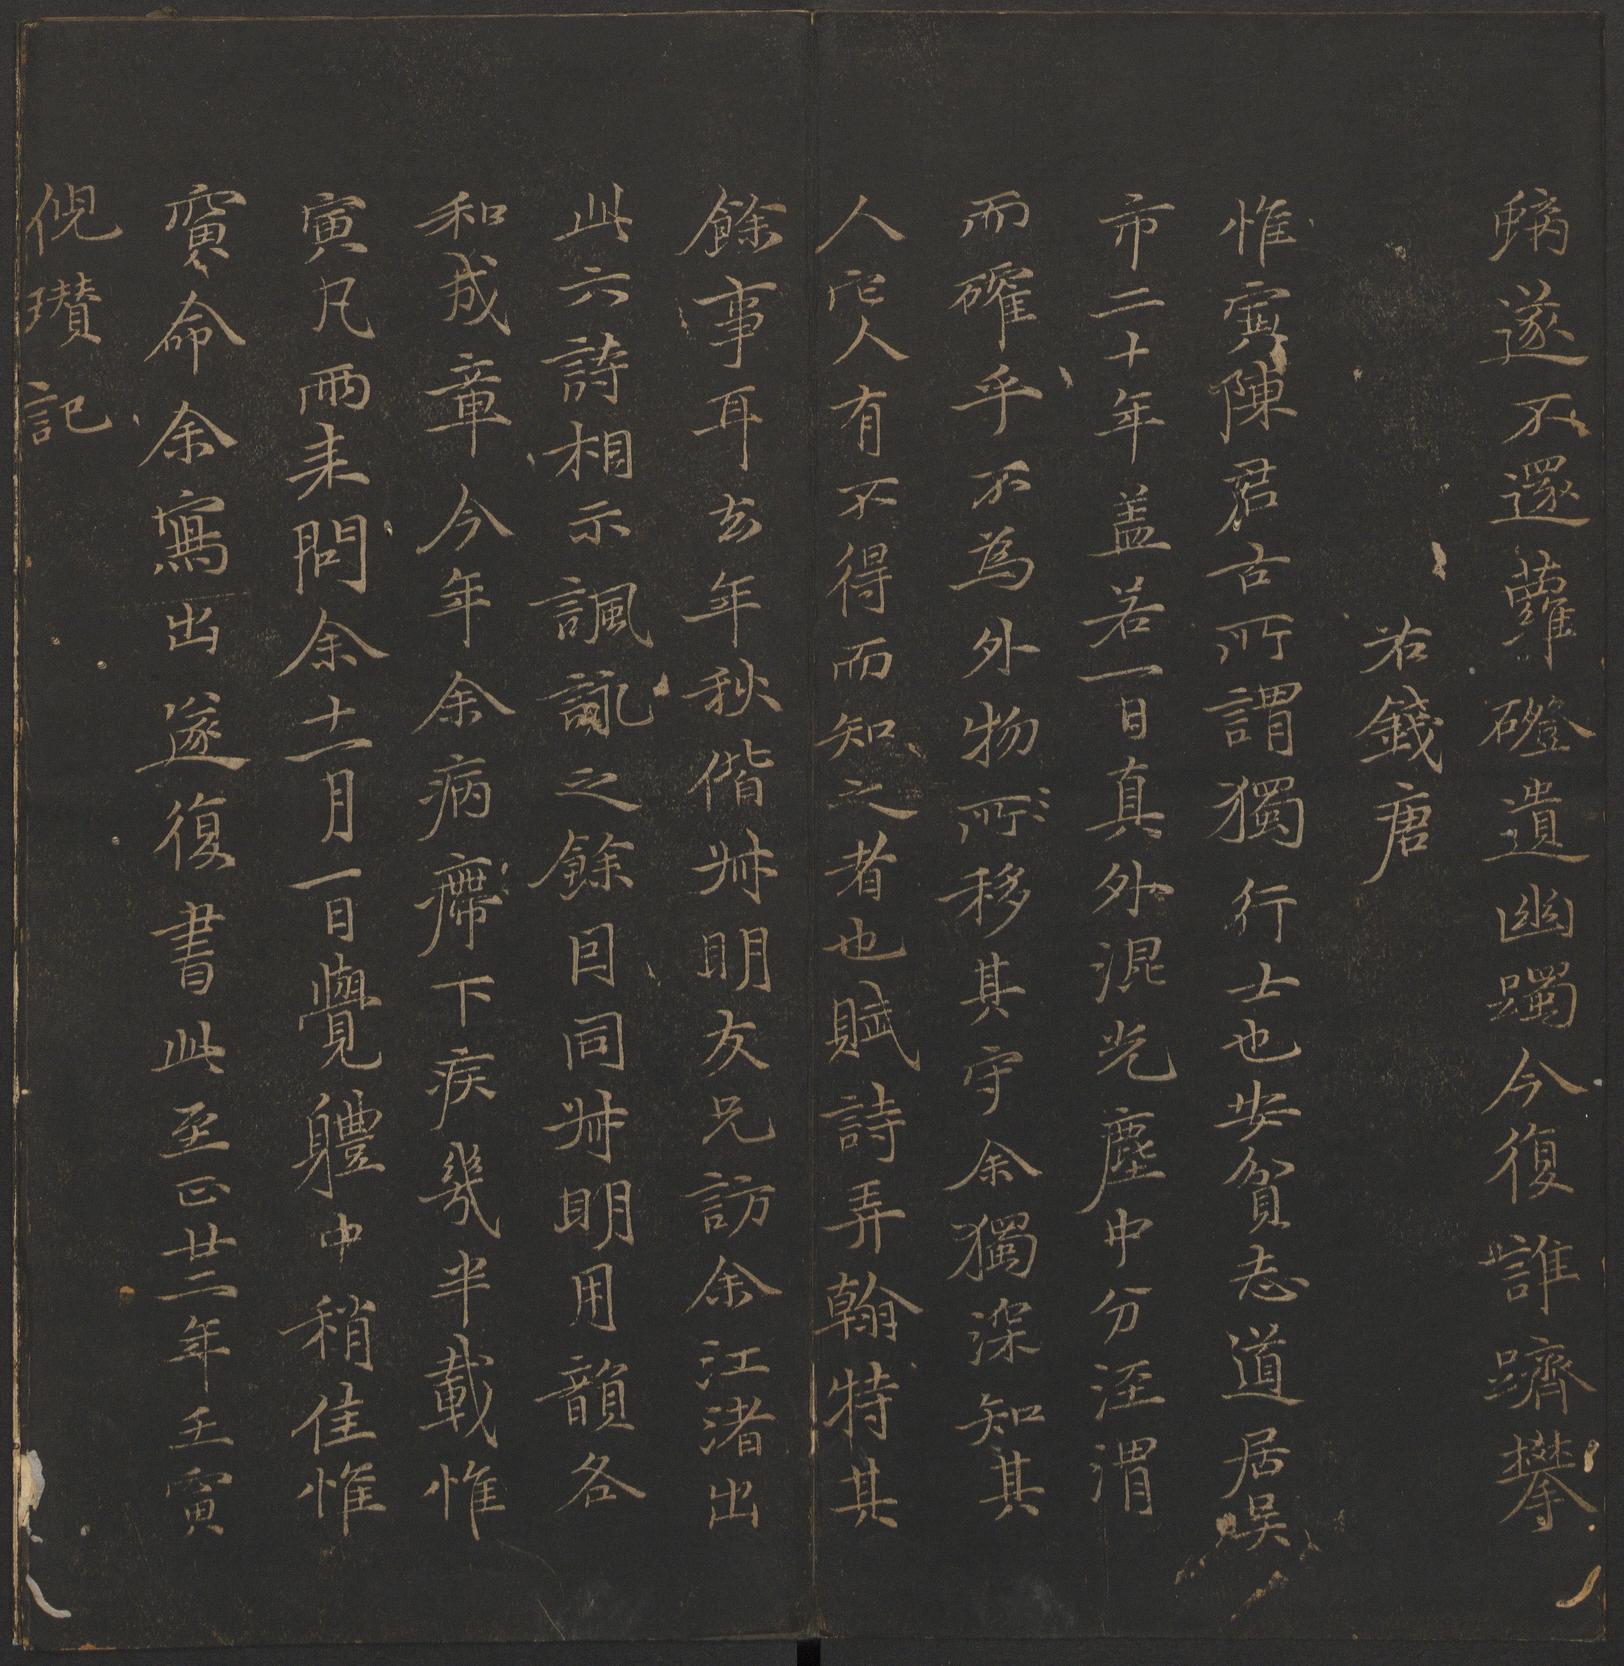 螭遂不還蘿磴遺幽躅今復誰躋攀
右錢唐
惟寅陳君古所謂獨行士也安貧志道居吴
市二十年盖若一日真外混光塵中分涇渭
而確乎不為外物所移其守余獨深知其
人它人有不得而知之者也賦詩弄翰特其
餘事耳去年秋偕叔明友兄訪余江渚出
此六詩相示諷詠之餘因同叔明用韻各
和成章今年余病滯下疾幾半載惟
寅凡兩来問余十一月一日覺軆中稍佳惟
寅命余寫出遂復書此至正廿二年壬寅
倪瓚記